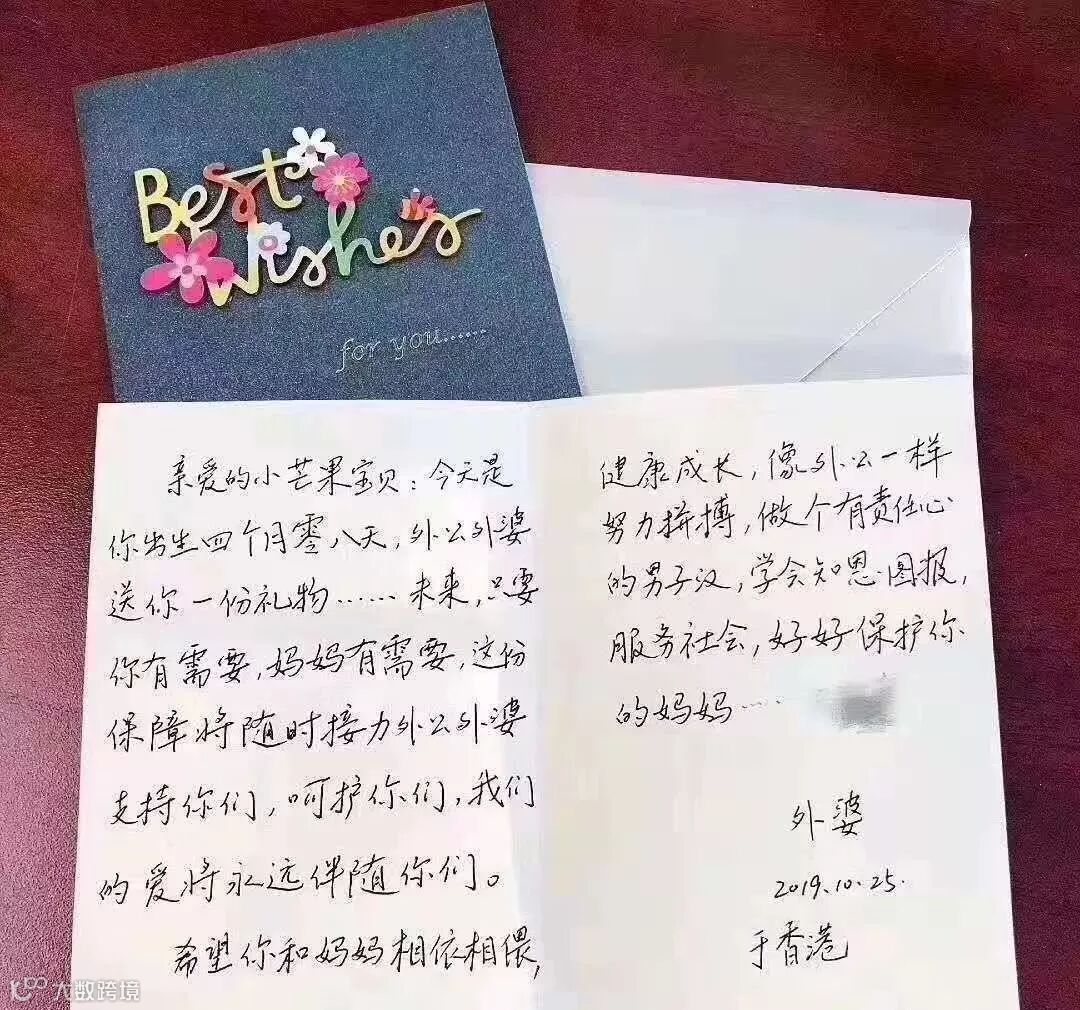 Best
Wishes
for you......
亲爱的小芒果宝贝：今天是
你出生四个月零八天，外公外婆
送你一份礼物……未来，只要
你有需要，妈妈有需要，这份
保障将随时接力外公外婆
支持你们，呵护你们，我们
的爱将永远伴随你们。
希望你和妈妈相依相偎，
健康成长，像外公一样
努力拼搏，做个有责任心
的男子汉，学会知恩图报，
服务社会，好好保护你
的妈妈……
外婆
2019.10.25.
于香港
大数跨境